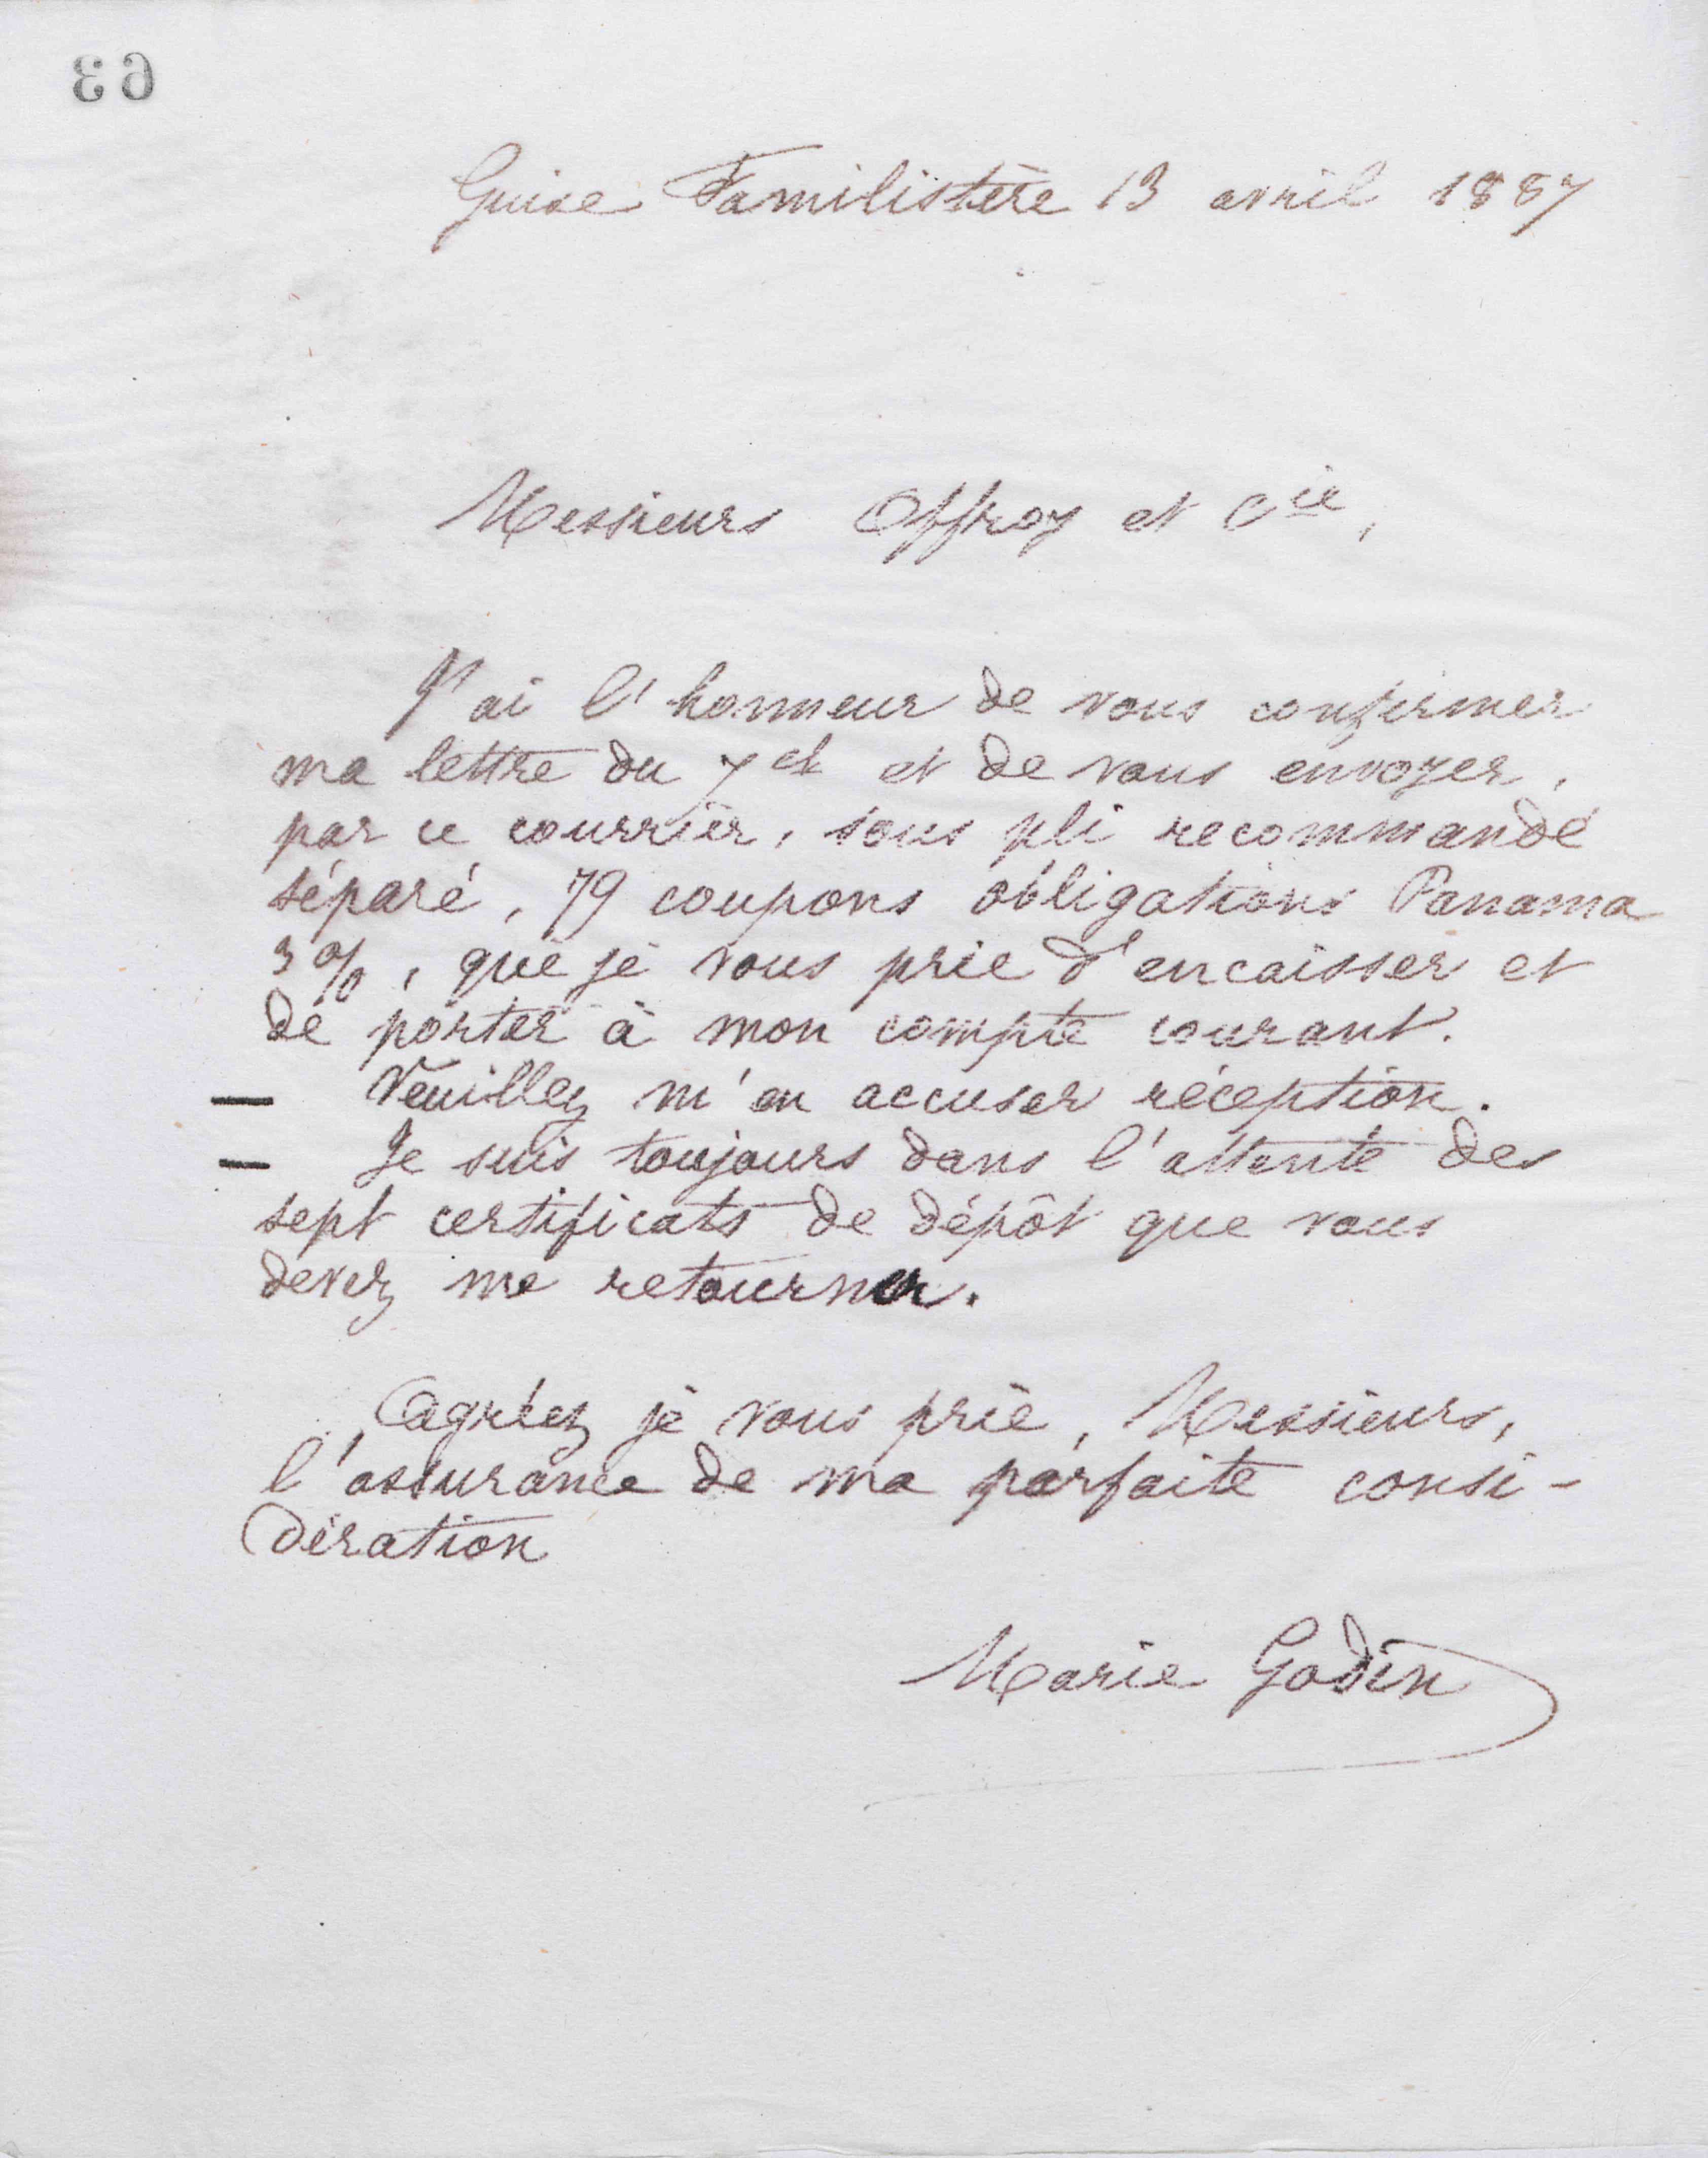 63
Guise Familistère 13 avril 1887
Messieurs Offroy et Cie,
J'ai l'honneur de vous confirmer
ma lettre du 7 ct et de vous envoyer,
par ce courrier, sous pli recommandé
séparé, 79 coupons obligations Panama
3 %, que je vous prie d'encaisser et
de porter à mon compte courant.
— Veuillez m'en accuser réception.
— Je suis toujours dans l'attente des
sept certificats de dépôt que vous
devez me retourner.
Agréez je vous prie, Messieurs,
l'assurance de ma parfaite consi-
dération
Marie Godin